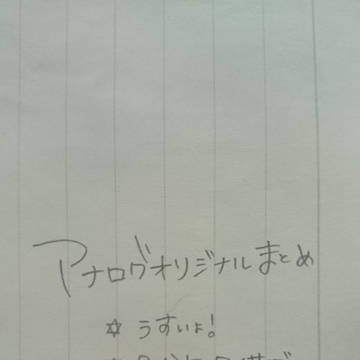 アナログオリジナルまとめ
☆ うすいよ!